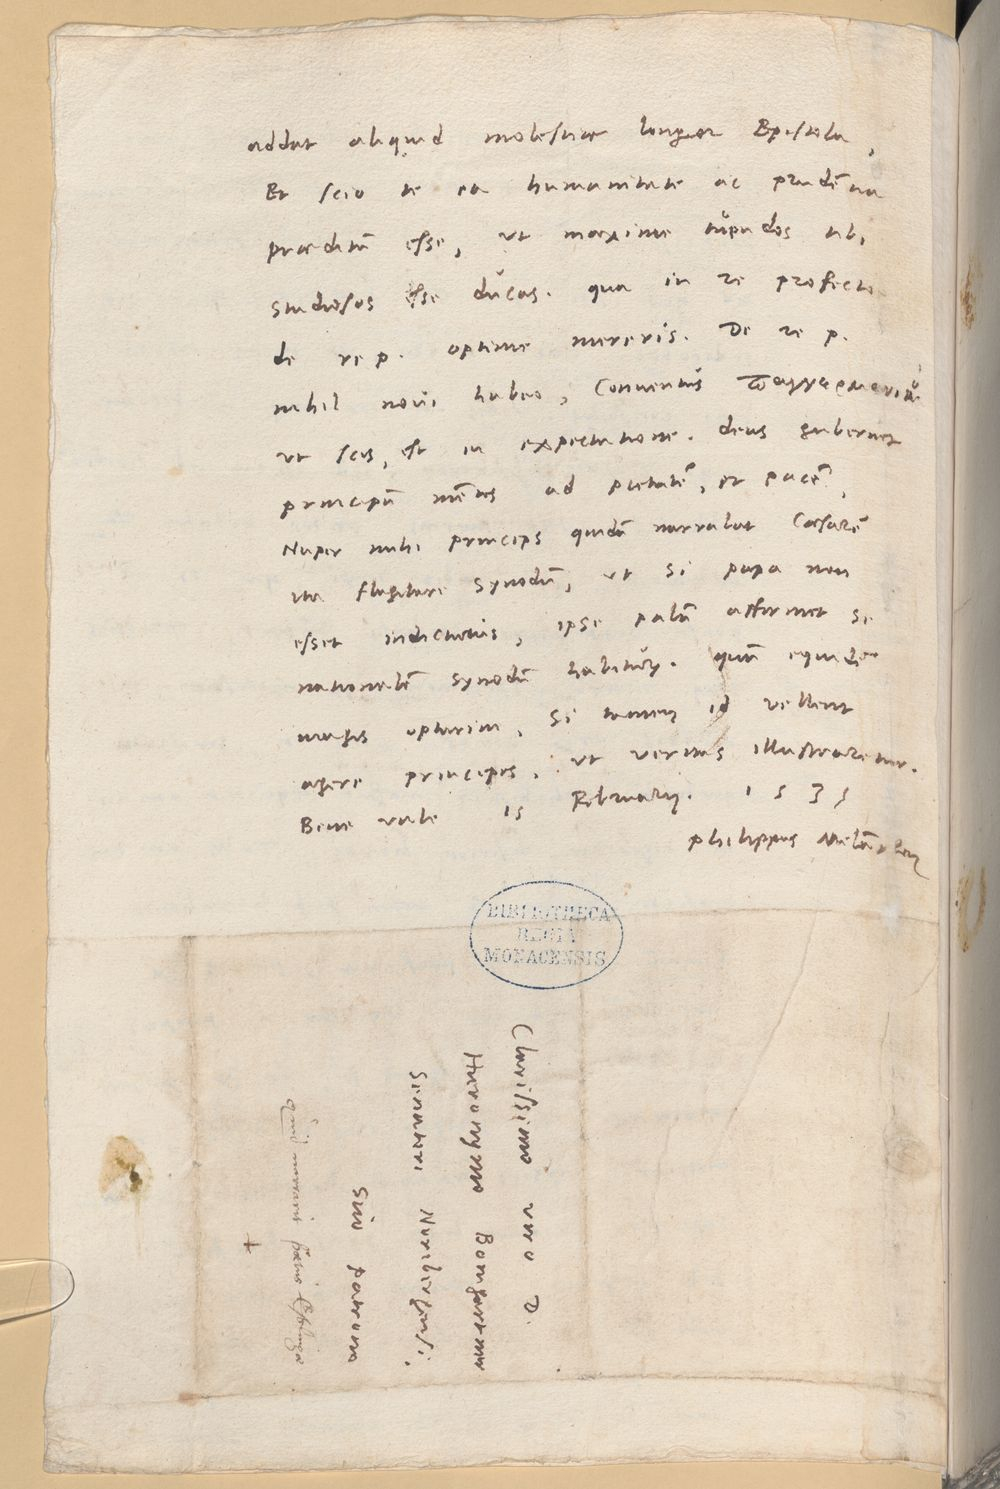 addat aliquid molestiae longior Epistola,
Et scio te ea humanitate ac prudētia
præditū esse, ut maxime cupidos tibi
studiosos esse ducas. qua in re profecto
de rep. optime mereris. De re p.
nihil novi habeo, Conventus
ut scis, est in expectatione. deus gubernet
principū mētes ad pietatē, et pacē,
Nuper mihi princeps quidā narrabat Cæsarē
ita flagitare Synodū, ut si papa non
esset indicturus, ipse palā affirmet se
nationalē synodū habiturū. quā equidē
magis optarim, Si tamen id vellent
agere principes, ut veritas illustraretur.
Bene vale 15 Februarij. 1535
philippus Melāthon
BIBLIOTHECA
REGIA
MONACENSIS
Clarissimo viro D.
Hieronymo Bomgartner
Senatori Noribergensi,
suo patrono
+